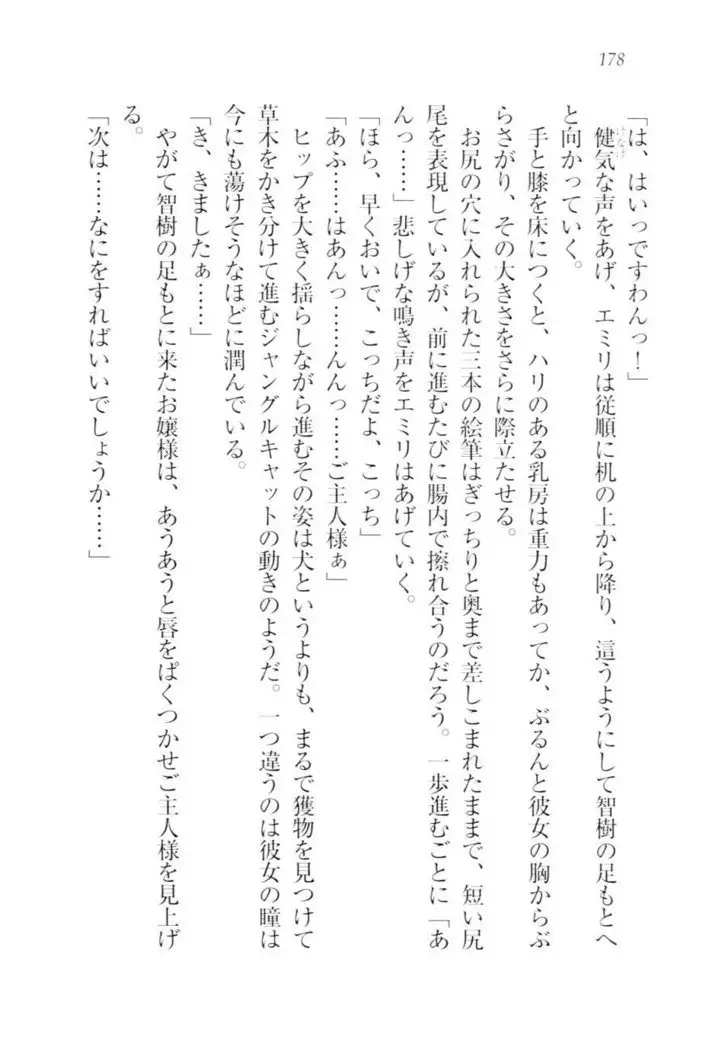 178
「は、はいっですわんっ！」
健気な声をあげ、エミリは従順に机の上から降り、這うようにして智樹の足もとへ
と向かっていく。
手と膝を床につくと、ハリのある乳房は重力もあってか、ぶるんと彼女の胸からぶ
らさがり、その大きさをさらに際立たせる。
お尻の穴に入れられた三本の絵筆はぎっちりと奥まで差しこまれたままで、短い尻
尾を表現しているが、前に進むたびに腸内で擦れ合うのだろう。一歩進むごとに「あ
んっ……」悲しげな鳴き声をエミリはあげていく。
「ほら、早くおいで、こっちだよ、こっち」
「あふ……はあんっ……んんっ……ご主人様ぁ」
ヒップを大きく揺らしながら進むその姿は犬というよりも、まるで獲物を見つけて
草木をかき分けて進むジャングルキャットの動きのようだ。一つ違うのは彼女の瞳は
今にも蕩けそうなほどに潤んでいる。
「き、きましたぁ……」
やがて智樹の足もとに来たお嬢様は、あうあうと唇をぱくつかせご主人様を見上げ
る。
「次は……なにをすればいいでしょうか……」